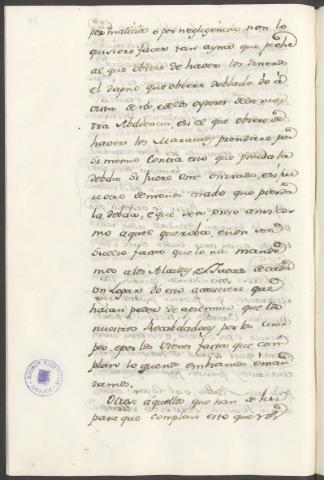 por malicia o por negligencia non lo
quisiere facer tan ayna que peche
al que obiere de haver los dineros
el dapno que obiere doblado
vista de los oydores de la nues
tra Abdiencia, e si el que obiere de
haver los Maravs. prendare por
si mesmo contra esto que pierda la
debda si fuere ome onrrado, e si fue
de menor estado que pierda
la debda, e que sea preso
mo aquel que roba, e non sea
suelto fasta que lo nos mande
mos a los Alcalles e Jueces de cada
un Logar do esto acaesciere que
hayan poder de apremiar que los
nuestros Recabdadores por los cuer
pos, e por los vienes fasta que cum
plan lo que nos embiamos e man
damos.
Otrosi aquellos que han de
para que cumplan esto que